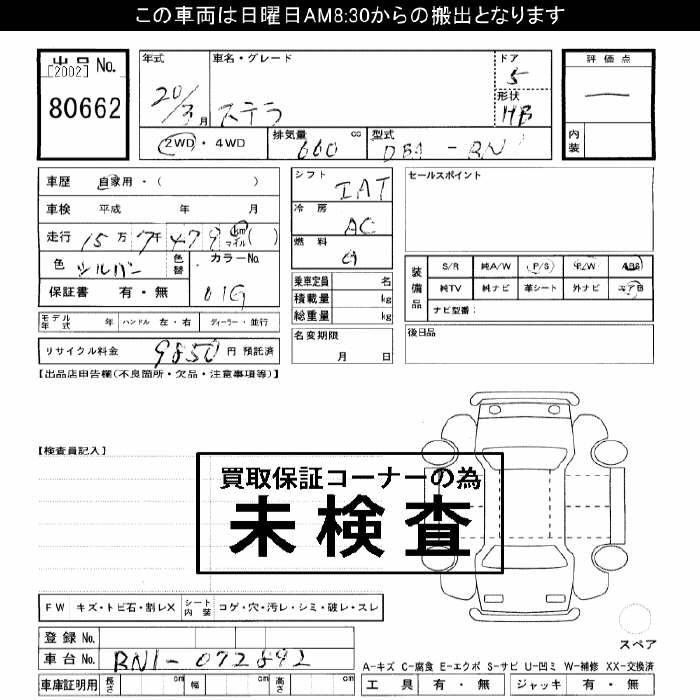 この車両は日曜日AM8:30からの搬出となります
出品 No.
[2002]
80662
年式
20/3月
車名・グレード
ステラ
ドア
5
形状
HB
評価点
一
内装
2WD ・ 4WD
排気量 660 cc
型式 DBA - RN1
車歴 自家用 ・ ( )
車検 平成 年 月
走行 15万7千479 km マイル ( )
色 シルバー 色替 カラーNo. 01G
保証書 有・無
モデル年式 年 ハンドル 左・右 ディーラー・並行
リサイクル料金 9850 円 預託済
シフト IAT
冷房 AC
燃料 G
乗車定員 名
積載量 kg
総重量 kg
名変期限
月 日
セールスポイント
装備品
S/R 純A/W P/S P/W ABS
純TV 純ナビ 革シート 外ナビ エアB
ナビ型番:
後日品
【出品店申告欄(不良箇所・欠品・注意事項等)】
【検査員記入】
買取保証コーナーの為
未検査
FW キズ・トビ石・割レX シート内装 コゲ・穴・汚レ・シミ・破レ・スレ
登録 No.
車台 No. RN1-072892
車庫証明用 長さ cm 幅 cm 高さ cm
スペア
A-キズ C-腐食 E-エクボ S-サビ U-凹ミ W-補修 XX-交換済
工具 有・無 ジャッキ 有・無